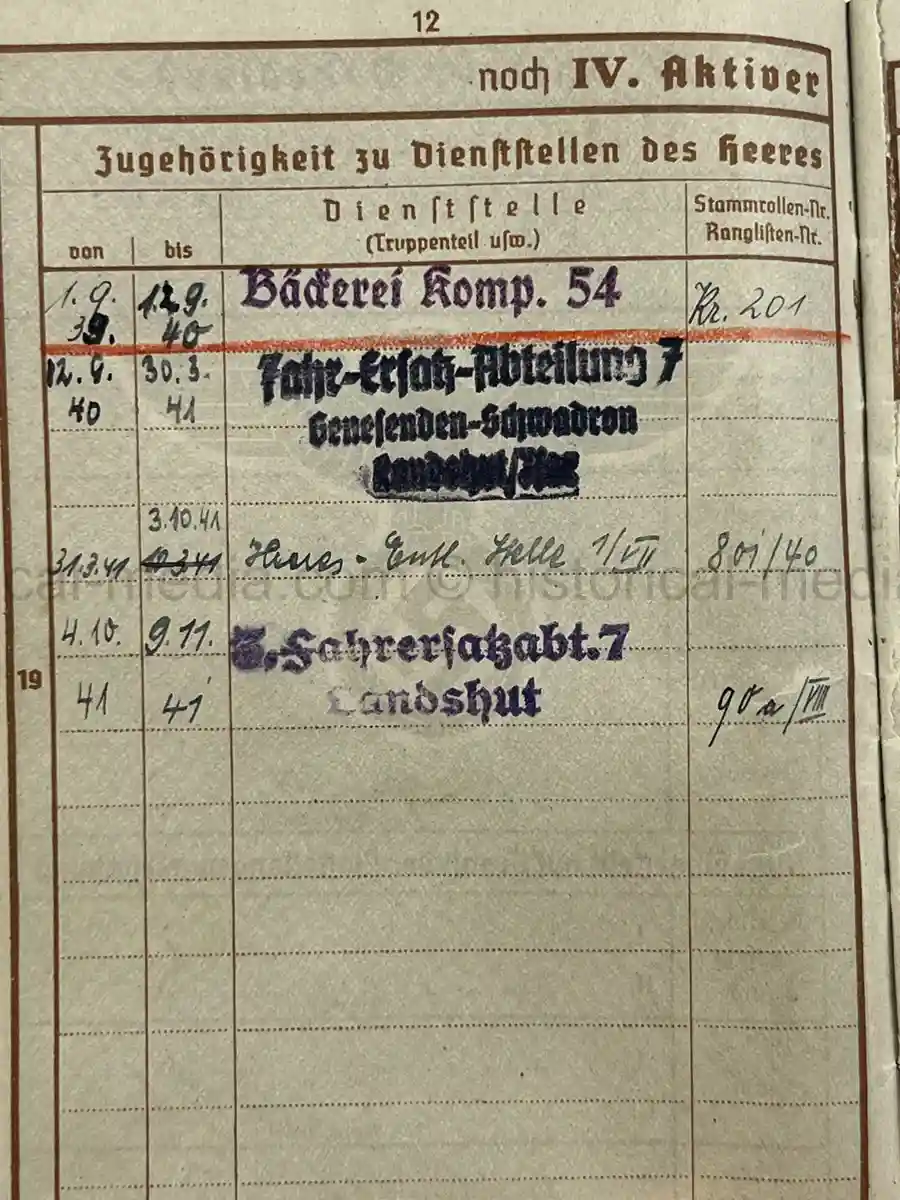 12
noch IV. Aktiver
Zugehörigkeit zu Dienststellen des Heeres
von
bis
Dienststelle
(Truppenteil usw.)
Stammrollen-Nr.
Ranglisten-Nr.
1.9.
39.
12.9.
40
Bäckerei Komp. 54
Kr. 201
12.9.
40
30.3.
41
Fahr-Ersatz-Abteilung 7
Genesenden-Schwadron
Landshut/
3.10.41
31.3.41
Heeres-Entl. Stelle 1/VII
801/40
4.10.
41
9.11.
41
Fahrersatzabt. 7
Landshut
90 a/VIII
19
car-media.com © historical-medi